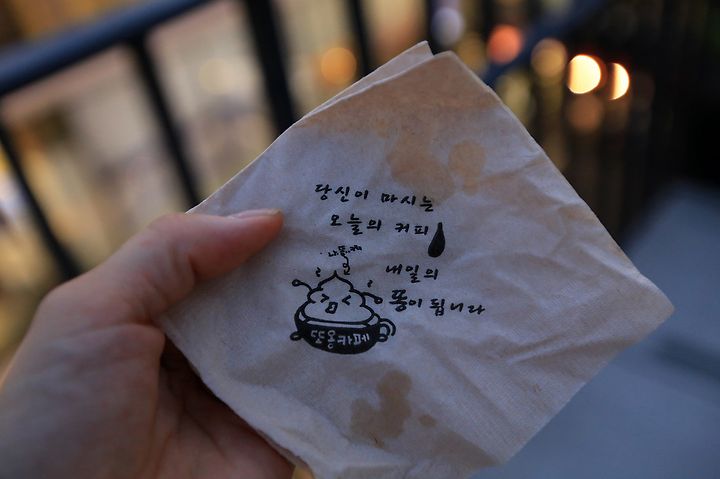 당신이 마시는
오늘의 커피
내일의
똥이 됩니다
또옹카페